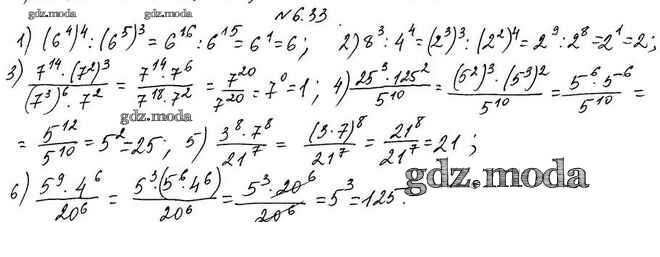 №6.33
gdz.moda gdz.moda
1) (6⁴)⁴ : (6⁵)³ = 6¹⁶ : 6¹⁵ = 6¹ = 6; 2) 8³ : 4⁴ = (2³)³ : (2²)⁴ = 2⁹ : 2⁸ = 2¹ = 2;
gdz.moda gdz.moda
3) 7¹⁴·(7²)³ / (7³)⁶·7² = 7¹⁴·7⁶ / 7¹⁸·7² = 7²⁰ / 7²⁰ = 7⁰ = 1; 4) 25³·125² / 5¹⁰ = (5²)³·(5³)² / 5¹⁰ = 5⁶·5⁻⁶ / 5¹⁰ =
gdz.moda
= 5¹² / 5¹⁰ = 5² = 25; 5) 3⁸·7⁸ / 21⁷ = (3·7)⁸ / 21⁷ = 21⁸ / 21⁷ = 21;
6) 5⁹·4⁶ / 20⁶ = 5³·(5⁶·4⁶) / 20⁶ = 5³·20⁶ / 20⁶ = 5³ = 125.
gdz.moda